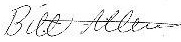 Bill Allen